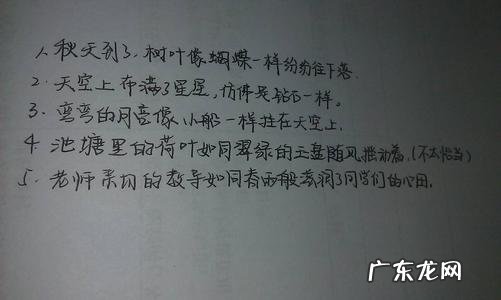 1. 秋天到了，树叶像蝴蝶一样纷纷往下落.
2. 天空上布满了星星，仿佛是钻石一样。
3. 弯弯的月亮像小船一样挂在天空上.
4 池塘里的荷叶如同翠绿的玉盘随风摇动着.(不太恰当)
5. 老师亲切的教导如同春雨般滋润了同学们的心田.
广东龙网